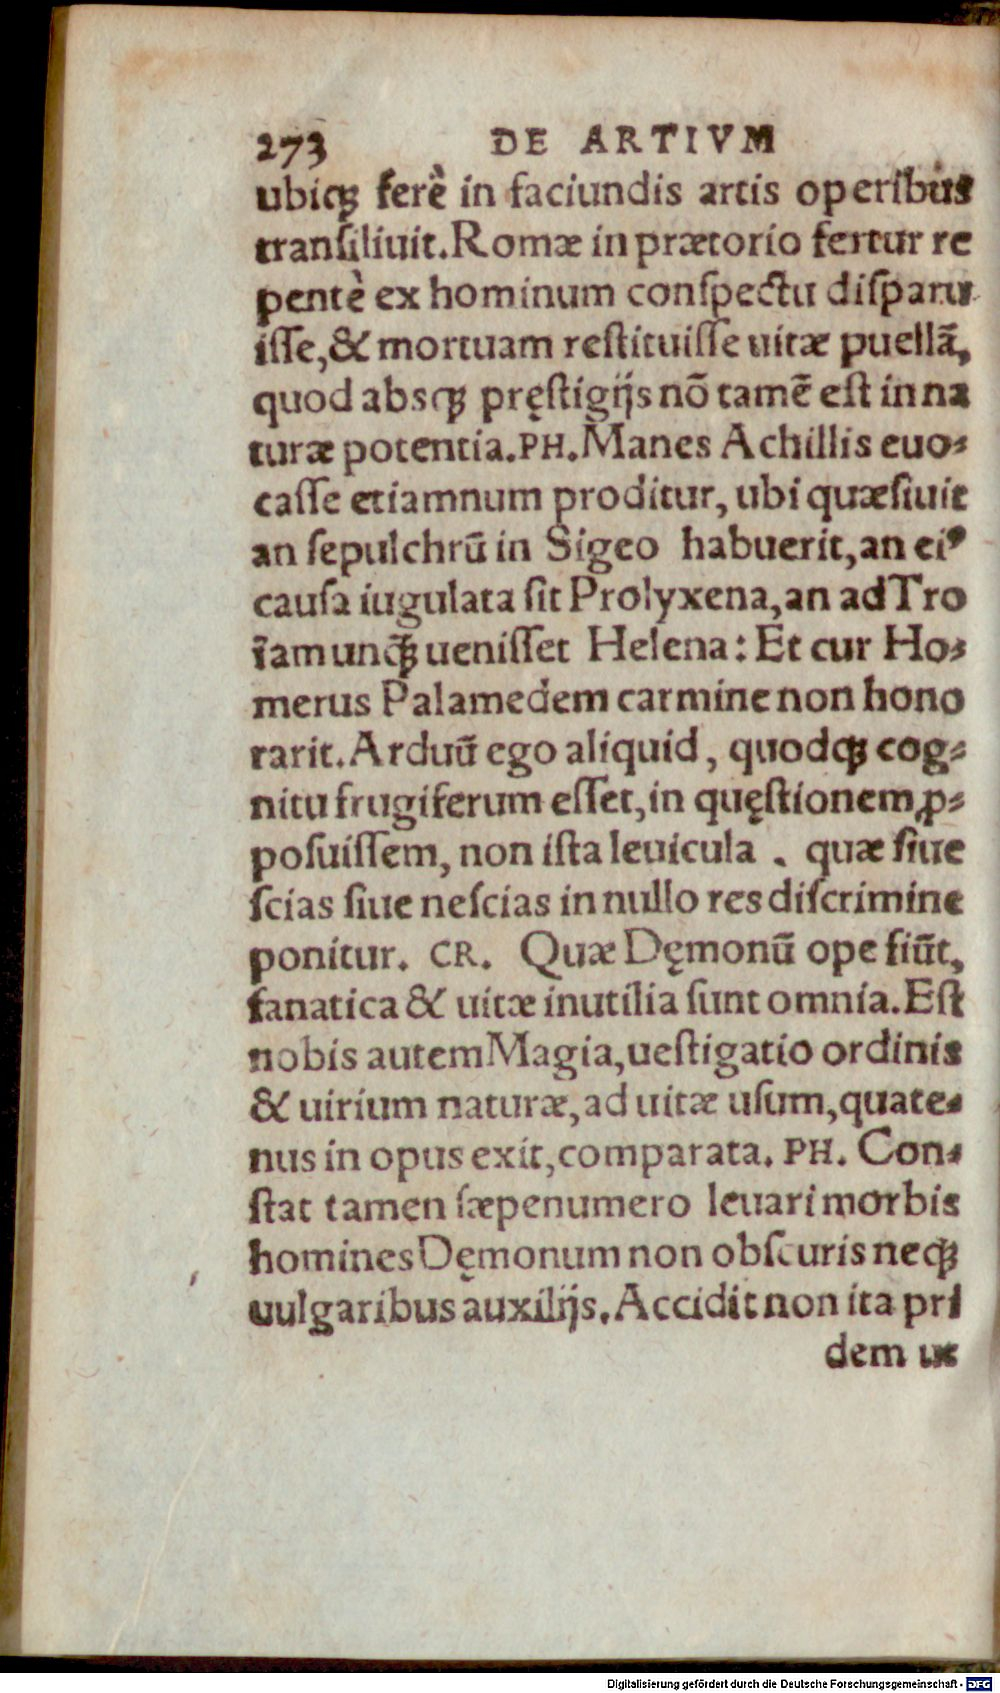 273 DE ARTIVM
ubicꝗ ferè in faciundis artis operibus
tranſiliuit. Romæ in prætorio fertur re
pentè ex hominum conſpectu diſparu
iſſe, & mortuam reſtituiſſe uitæ puellã,
quod abſcꝗ pręſtigijs nõ tamẽ eſt in na
turæ potentia. PH. Manes Achillis euo⸗
caſſe etiamnum proditur, ubi quæſiuit
an ſepulchrũ in Sigeo habuerit, an eiꝰ
cauſa iugulata ſit Prolyxena, an ad Tro
iam uncꝗ̃ ueniſſet Helena: Et cur Ho⸗
merus Palamedem carmine non hono
rarit. Arduũ ego aliquid, quodcꝗ cog⸗
nitu frugiferum eſſet, in quęſtionem ꝓ⸗
poſuiſſem, non iſta leuicula . quæ ſiue
ſcias ſiue neſcias in nullo res diſcrimine
ponitur. CR. Quæ Dęmonũ ope fiũt,
fanatica & uitæ inutilia ſunt omnia. Eſt
nobis autem Magia, ueſtigatio ordinis
& uirium naturæ, ad uitæ uſum, quate⸗
nus in opus exit, comparata. PH. Con⸗
ſtat tamen ſæpenumero leuari morbis
homines Dęmonum non obſcuris necꝗ
uulgaribus auxilijs. Accidit non ita pri
dem ut
Digitalisierung gefördert durch die Deutsche Forschungsgemeinschaft - DFG